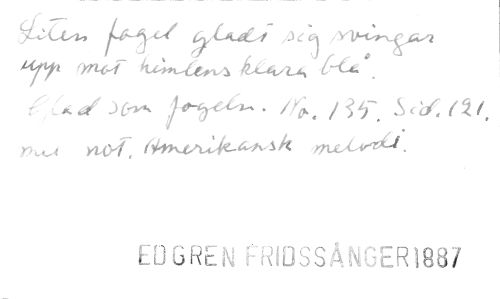 Liten fågel gladt sig svingar
upp mot himlens klara blå.
Glad som fogeln. No. 135. Sid. 121.
med not. Amerikansk melodi.
EDGREN FRIDSSÅNGER 1887